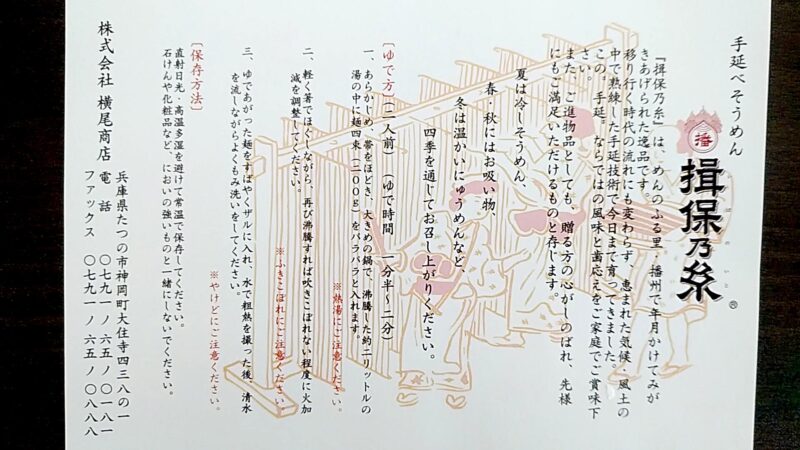 手延べそうめん
播
揖保乃糸
『揖保乃糸』は、めんのふる里・播州で年月かけてみが
きあげられた逸品です。
移り行く時代の流れにも変わらず、恵まれた気候・風土の
中で熟練した手延技術で今日まで育ってきました。
この〝手延〟ならではの風味と歯応えをご家庭でご賞味下
さい。
また、ご進物品としても、贈る方の心がしのばれ、先様
にもご満足いただけるものと存じます。
夏は冷しそうめん、
春・秋にはお吸い物、
冬は温かいにゅうめんなど
四季を通じてお召し上がりください。
〔ゆで方〕(二人前) (ゆで時間 一分半〜二分)
一、あらかじめ、帯をほどき、大きめの鍋で、沸騰した約二リットルの
湯の中に麺四束(二〇〇g)をバラバラと入れます。
※熱湯にご注意ください。
二、軽く箸でほぐしながら、再び沸騰すれば吹きこぼれない程度に火加
減を調整してください。
※ふきこぼれにご注意ください。
三、ゆであがった麺をすばやくザルに入れ、水で粗熱を撮った後、清水
を流しながらよくもみ洗いをしてください。
※やけどにご注意ください。
〔保存方法〕
直射日光・高温多湿を避けて常温で保存してください。
石けんや化粧品など、においの強いものと一緒にしないでください。
株式会社 横尾商店
兵庫県たつの市神岡町大住寺四三八の一
電話 〇七九一/六五/〇一八一
ファックス 〇七九一/六五/〇八八八